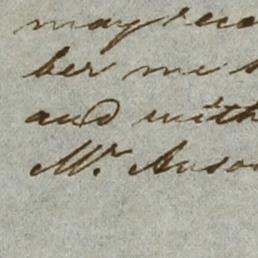 may rec
ber me
and with
Mr. Anson